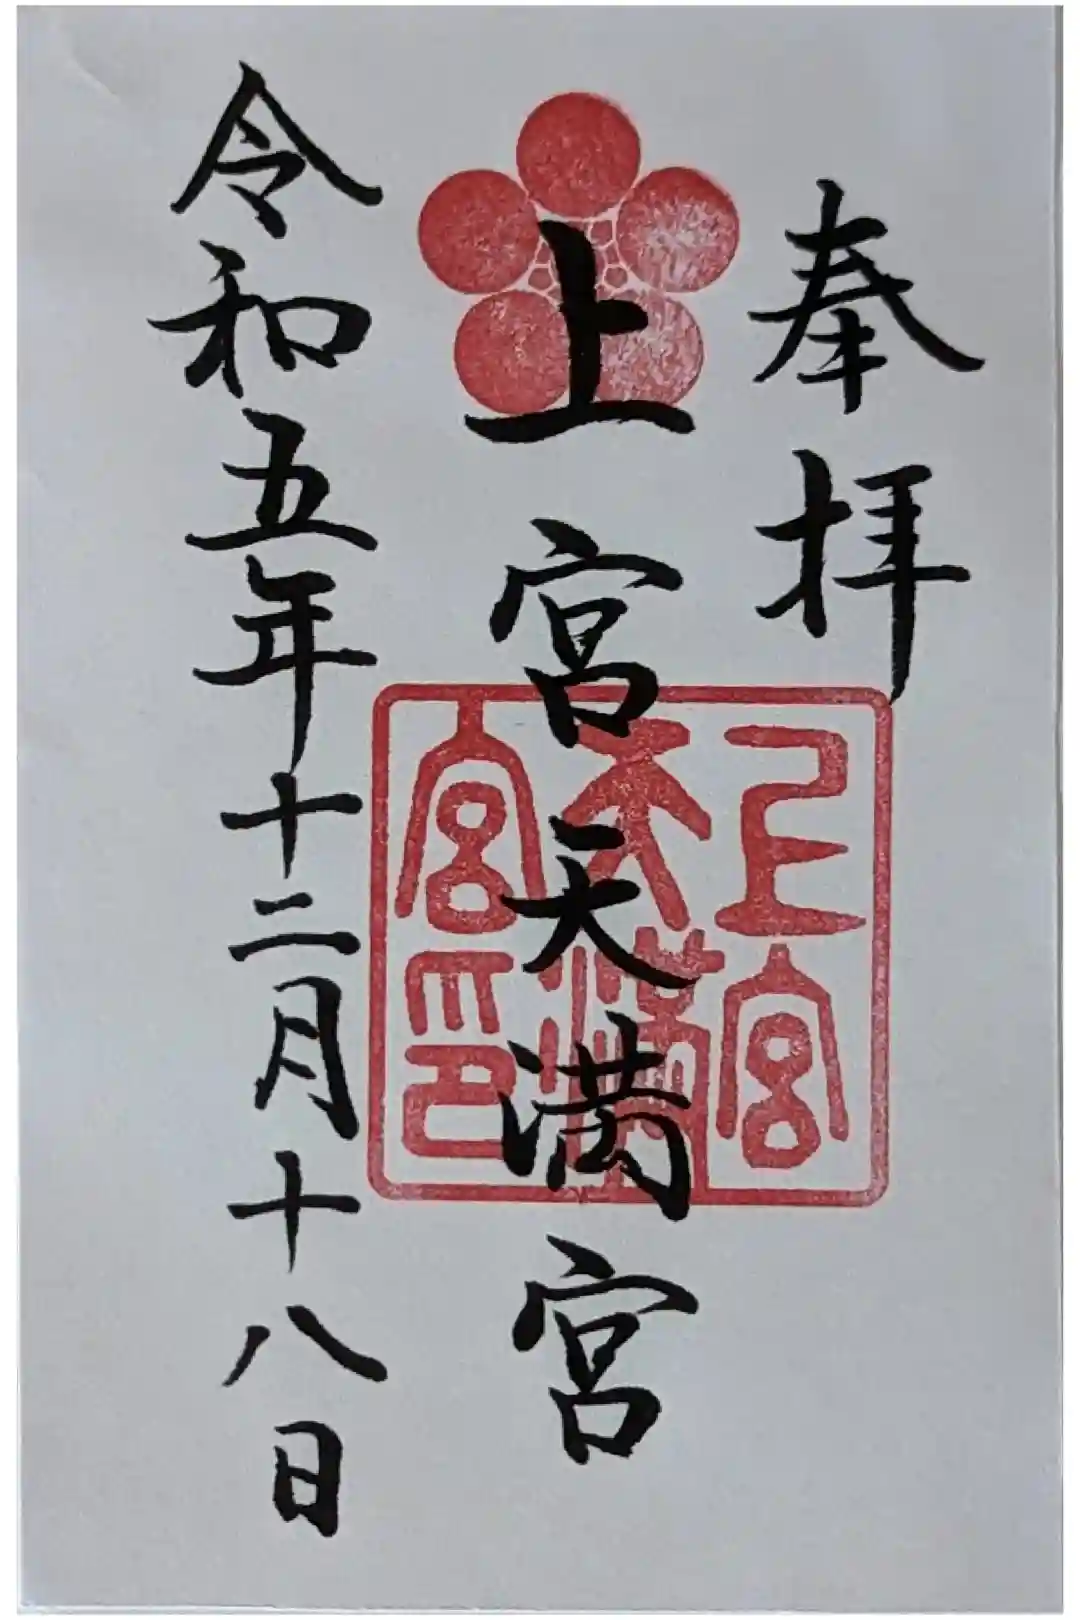 奉拝
上宮天満宮
令和五年十二月十八日
上宮
天満
宮印